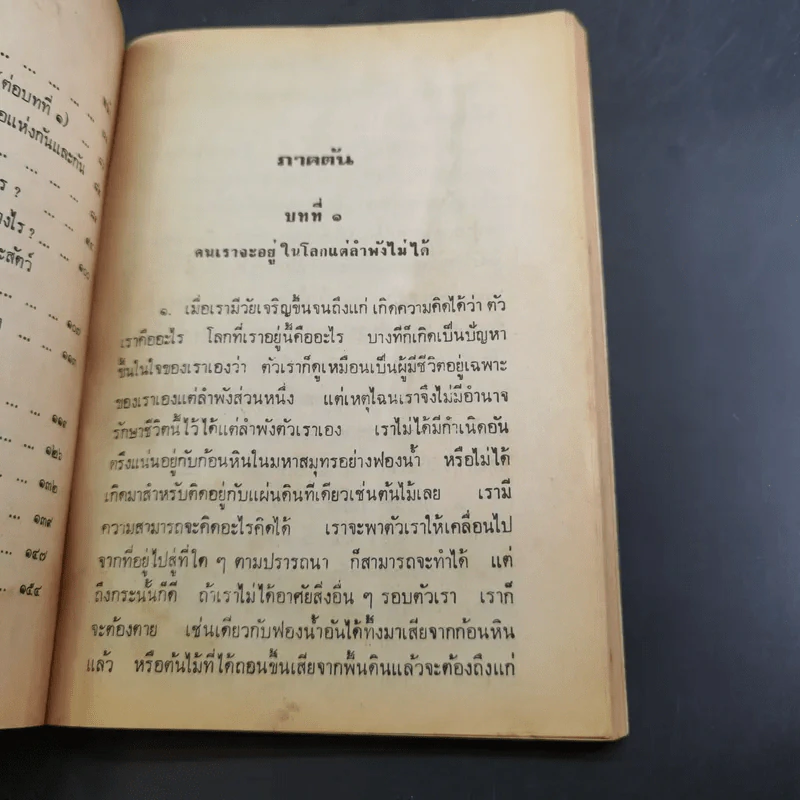 ... ... ...
ต่อบทที่ ๑)
แห่งกันและกัน
ร ?
งไร ?
ะสัตว์
๑๐๗
๑๑๓
๑๑๙
๑๒๖
๑๓๒
๑๓๙
๑๔๗
๑๕๔
ภาคต้น
บทที่ ๑
คนเราจะอยู่ในโลกแต่ลำพังไม่ได้
๑. เมื่อเรามีวัยเจริญขึ้นจนถึงแก่ เกิดความคิดได้ว่า ตัว
เราคืออะไร โลกที่เราอยู่นี้คืออะไร บางทีก็เกิดเป็นปัญหา
ขึ้นในใจของเราเองว่า ตัวเราก็ดูเหมือนเป็นผู้มีชีวิตอยู่เฉพาะ
ของเราเองแต่ลำพังส่วนหนึ่ง แต่เหตุไฉนเราจึงไม่มีอำนาจ
รักษาชีวิตนี้ไว้ได้แต่ลำพังตัวเราเอง เราไม่ได้มีกำเนิดอัน
ตรึงแน่นอยู่กับก้อนหินในมหาสมุทรอย่างฟองน้ำ หรือไม่ได้
เกิดมาสำหรับติดอยู่กับแผ่นดินที่เดียวเช่นต้นไม้เลย เรามี
ความสามารถจะคิดอะไรคิดได้ เราจะพาตัวเราให้เคลื่อนไป
จากที่อยู่ไปสู่ที่ใด ๆ ตามปรารถนา ก็สามารถจะทำได้ แต่
ถึงกระนั้นก็ดี ถ้าเราไม่ได้อาศัยสิ่งอื่น ๆ รอบตัวเรา เราก็
จะต้องตาย เช่นเดียวกับฟองน้ำอันได้ทิ้งมาเสียจากก้อนหิน
แล้ว หรือต้นไม้ที่ได้ถอนขึ้นเสียจากพื้นดินแล้วจะต้องถึงแก่